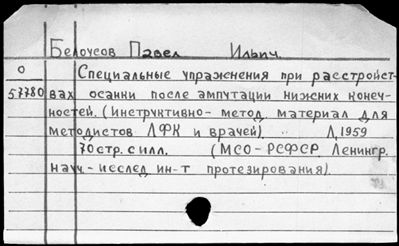 Белоусов Павел Ильич.
О Специальные упражнения при расстройст-
57780 вах осанки после ампутации нижних конеч-
ностей. (Инструктивно-метод. материал для
методистов ЛФК и врачей). Л, 1959
70 стр. с илл. (МСО-РСФСР Ленингр.
науч.-исслед ин-т протезирования).